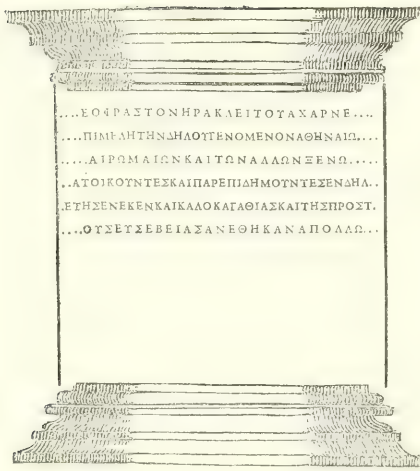 ....ΕΟΦΡΑΣΤΟΝΗΡΑΚΛΕΙΤΟΥΑΧΑΡΝΕ....
....ΠΙΜΕΛΗΤΗΝΔΗΛΟΥΓΕΝΟΜΕΝΟΝΑΘΗΝΑΙΩ....
....ΑΙΡΩΜΑΙΩΝΚΑΙΤΩΝΑΛΛΩΝΞΕΝΩ.....
..ΑΤΟΙΚΟΥΝΤΕΣΚΑΙΠΑΡΕΠΙΔΗΜΟΥΝΤΕΣΕΝΔΗΛ..
.ΕΤΗΣΕΝΕΚΕΝΚΑΙΚΑΛΟΚΑΓΑΘΙΑΣΚΑΙΤΗΣΠΡΟΣΤ.
....ΟΥΣΕΥΣΕΒΕΙΑΣΑΝΕΘΗΚΑΝΑΠΟΛΛΩ...